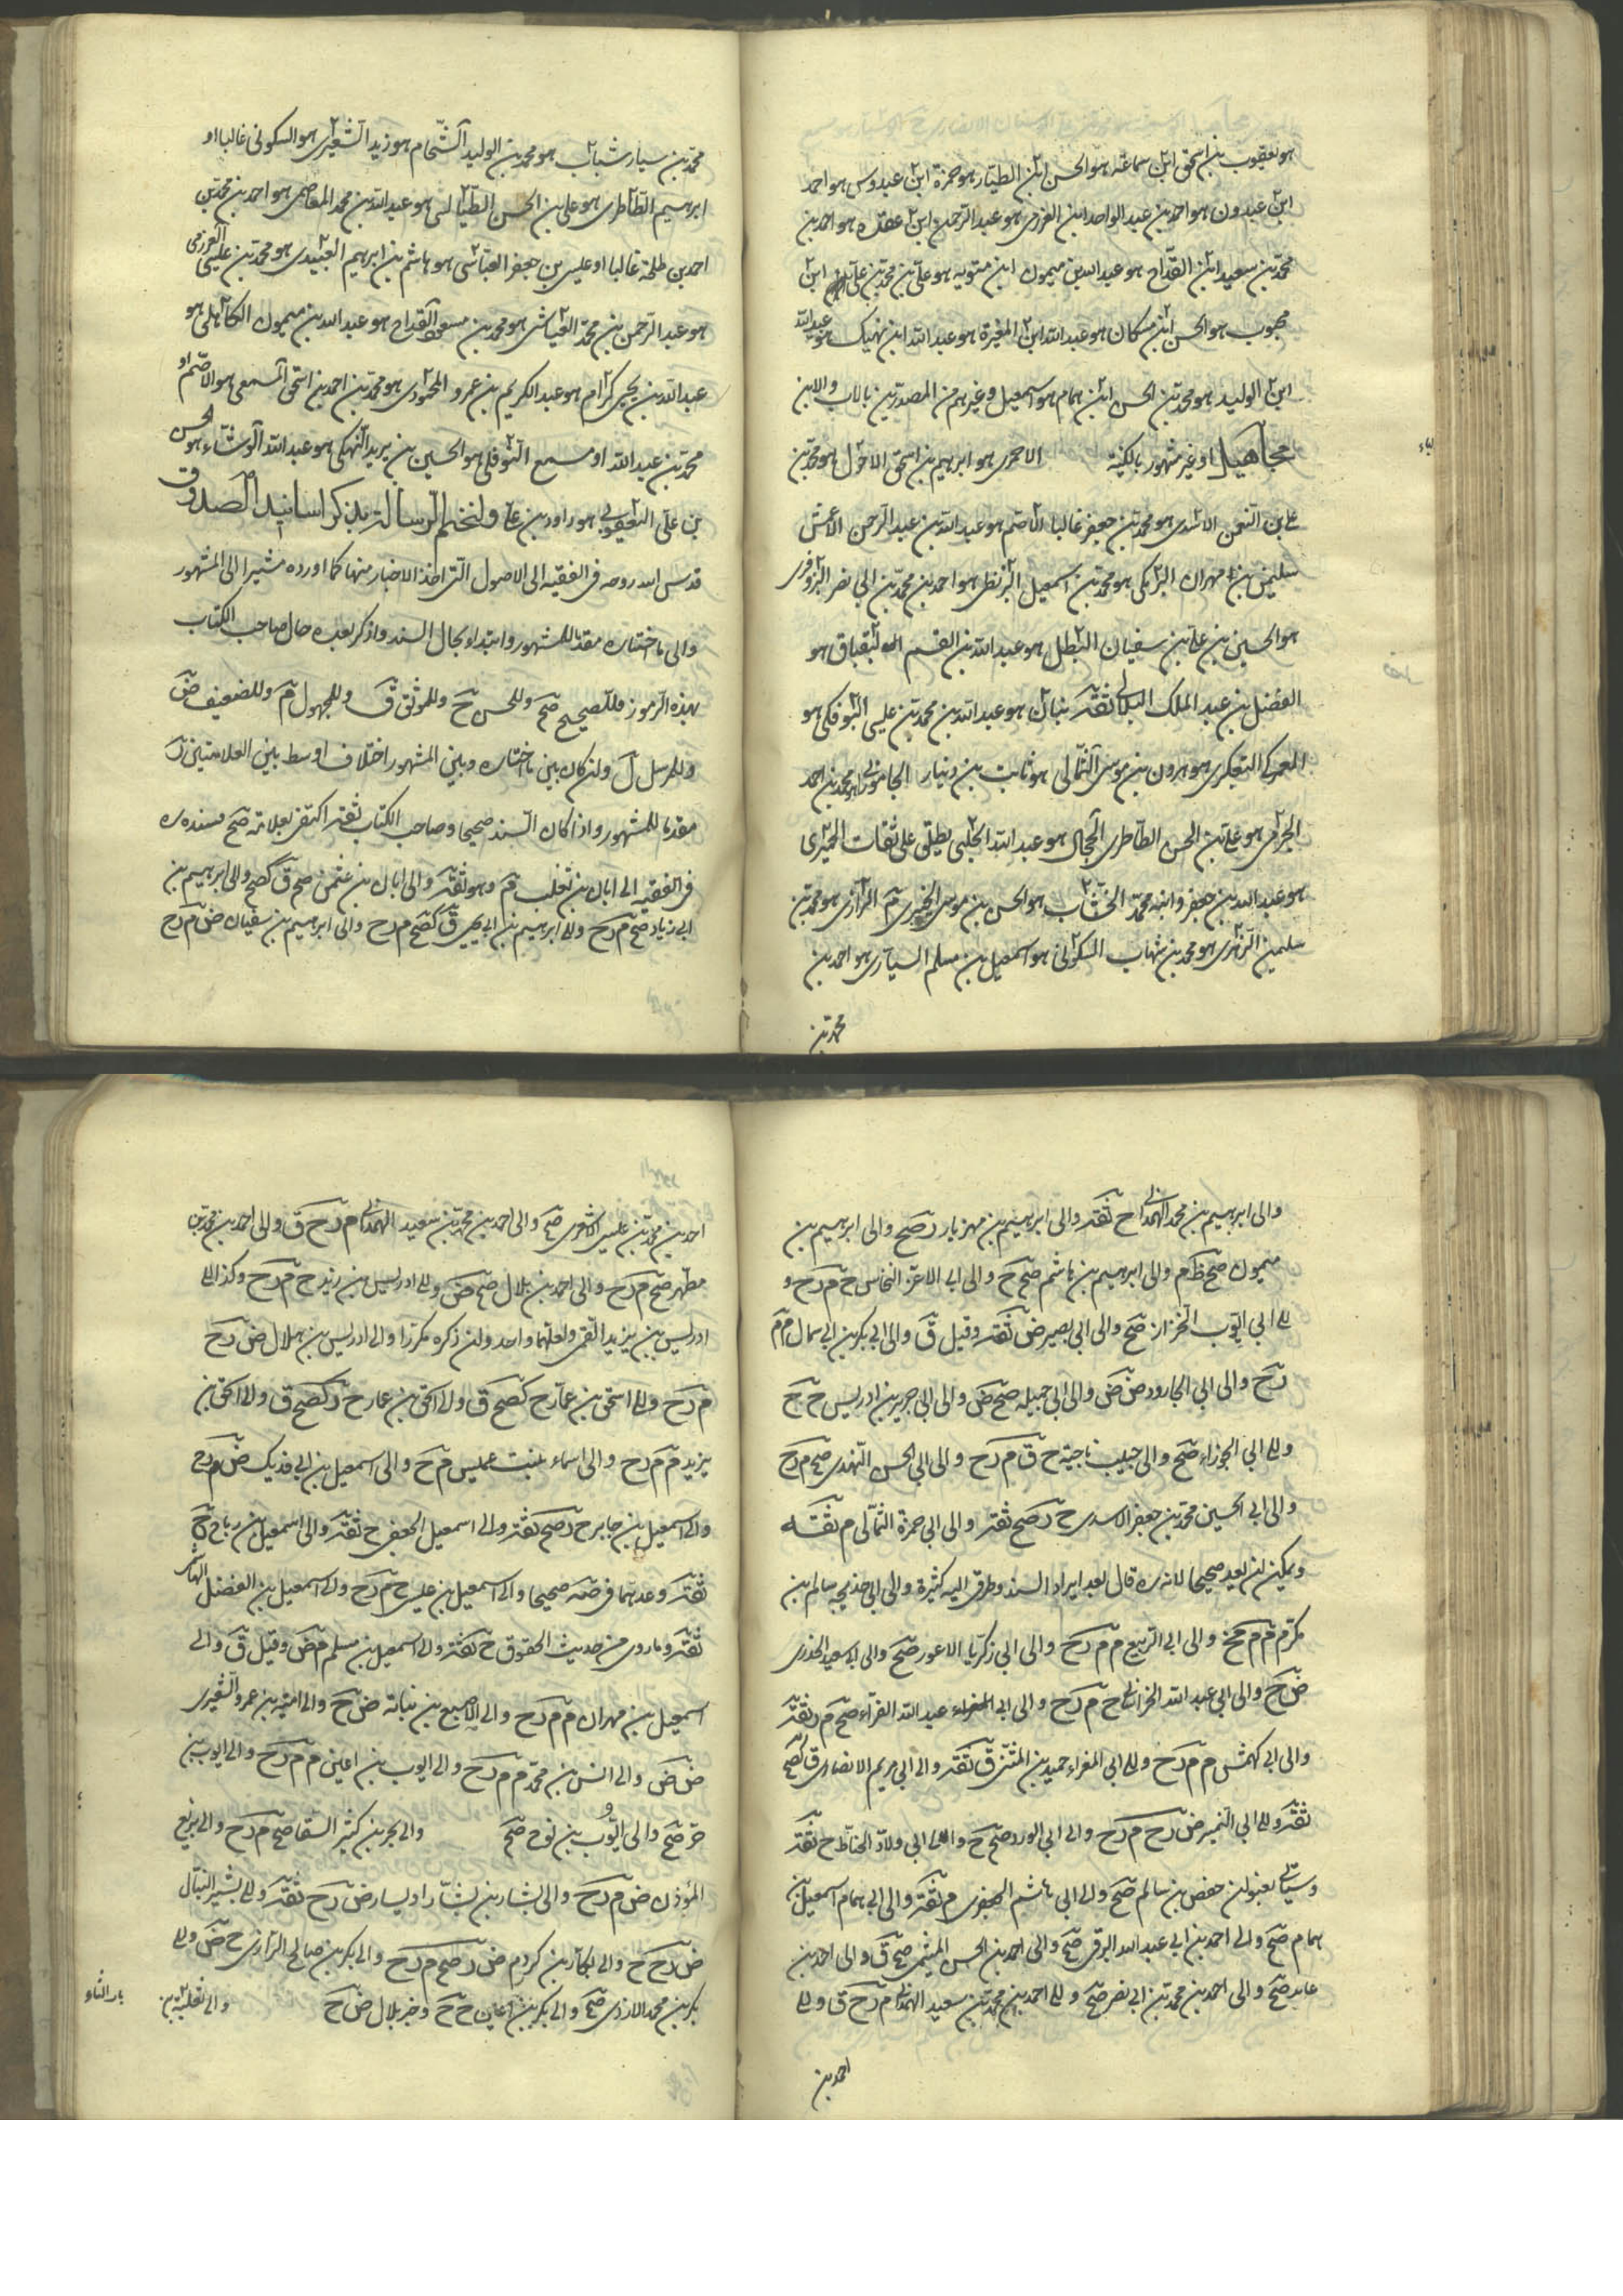 هو يعقوب بن اسحق ابن سماعة هو الحسن ابن الطيار هو حمزة ابن عبدوس هو احمد
ابن عبدون هو احمد بن عبد الواحد ابن العزرمي هو عبد الرحمن ابن عقدة هو احمد بن
محمد بن سعيد ابن القداح هو عبد الله بن ميمون ابن متويه هو علي بن محمد بن علي ابن
محبوب هو الحسن ابن مسكان هو عبد الله ابن المغيرة هو عبد الله ابن نهيك هو عبد الله
ابن الوليد هو محمد بن الحسن ابن همام هو اسمعيل وغيرهم من المصدرين بالاب والابن
مجاهيل او غير مشهور بالكنية الاحمري هو ابرهيم بن اسحق الاحول هو محمد بن
علي بن النعمن الاسدي هو محمد بن جعفر غالبا الاصم هو عبد الله بن عبد الرحمن الاعمش
سليمن بن مهران البرمكي هو محمد بن اسمعيل البزنطي هو احمد بن محمد بن ابي نصر البزوفري
هو الحسين بن علي بن سفيان البطل هو عبد الله بن القسم البقباق هو
الفضل بن عبد الملك هو عبد الله بن محمد بن عيسى البوفكي هو
العمركي التلعكبري هو هرون بن موسى الثمالي هو ثابت بن دينار الجاموراني هو محمد بن احمد
الجرمي هو علي بن الحسن الطاطري الحجال هو عبد الله الحلبي يطلق على ثقات الحميري
هو عبد الله بن جعفر وابنه محمد الخشاب هو الحسن بن موسى الرازي هو محمد بن
سليمن الزهري هو محمد بن شهاب السكوني هو اسمعيل بن مسلم السياري هو احمد بن
محمد بن
محمد بن سيار شباب هو محمد بن الوليد الشحام هو زيد الشعيري هو السكوني غالبا او
ابرهيم الطاطري هو علي بن الحسن الطيالسي هو عبد الله بن محمد العاصمي هو احمد بن محمد بن
احمد بن طلحة غالبا او عيسى بن جعفر العباسي هو هاشم بن ابرهيم العبيدي هو محمد بن عيسى العزرمي
هو عبد الرحمن بن محمد العياشي هو محمد بن مسعود القداح هو عبد الله بن ميمون الكاهلي هو
عبد الله بن يحيى كرام هو عبد الكريم بن عمرو المحمودي هو محمد بن احمد بن اسحق المسمعي هو الاصم او
محمد بن عبد الله او مسمع النوفلي هو الحسين بن يزيد النهيكي هو عبد الله الوشاء هو الحسن
بن علي اليعقوبي هو داود بن علي ولنختم الرسالة بذكر اسانيد الصدوق
قدس الله روحه في الفقيه الى الاصول التي اخذ الاخبار منها كما اورده مشيرا الى المشهور
والى ما اختاره مقدما للمشهور وابتداء بحال السند واذكر بعده حال صاحب الكتاب
بهذه الرموز فللصحيح صح وللحسن ح وللموثق ق وللمجهول م وللضعيف ض
وللمرسل ل ولن كان بين ما اختاره وبين المشهور اختلاف اوسط بين العلامتين ر
مقدما للمشهور واذا كان السند صحيحا وصاحب الكتاب ثقة اكتفى بعلامة صح فسنده ره
في الفقيه الى ابان بن تغلب م وهو ثقة والى ابان بن عثمن صح ق كصح والى ابرهيم بن
ابي زياد صح م ر ح والى ابرهيم بن ابي ق كصح م ر ح والى ابرهيم بن سفيان ض م ر ح
والى ابرهيم بن محمد الهمداني ح ثقة والى ابرهيم بن مهزيار ر صح والى ابرهيم بن
ميمون صح ظ م والى ابرهيم بن هاشم صح ح والى ابي الاعز النخاس ح م ر ح و
الى ابي ايوب الخزاز صح والى ابي بصير ض ثقة وقيل ق والى ابي بكر بن ابي سمال م م
ر ح والى ابي الجارود ض ض والى ابي جميلة صح ض والى ابي جرير بن ادريس ح ح
والى ابي الجوزاء صح والى حبيب ناجية ح ق م ر ح والى ابي الحسن النهدي صح م ر ح
والى ابي الحسين محمد بن جعفر الاسدي ح ر صح ثقة والى ابي حمزة الثمالي م ثقة
ويمكن ان يعد صحيحا لانه ره قال بعد ايراد السند وطرقي اليه كثيرة والى ابي خديجة سالم بن
مكرم م م والى ابي الربيع م م ر ح والى ابي زكريا الاعور صح والى ابي سعيد الخدري
ض ح والى ابي عبد الله الخراساني ح م ر ح والى ابي عبد الله الفراء صح م ر ثقة
والى ابي كهمس م م ر ح والى ابي المغراء حميد بن المثنى ق ثقة والى ابي مريم الانصاري ق كصح
ثقة والى ابي النمير ض ر ح م ر ح والى ابي الورد صح ح والى ابي ولاد الحناط ح ثقة
وسيأتي بعنوان حفص بن سالم صح والى ابي هاشم الجعفري م ثقة والى ابي همام اسمعيل بن
همام صح والى احمد بن ابي عبد الله البرقي صح والى احمد بن الحسن الميثمي صح ق والى احمد بن
عائد صح والى احمد بن محمد بن ابي نصر صح والى احمد بن محمد بن سعيد الهمداني م ر ح ق والى
احمد بن
احمد بن محمد بن عيسى الاشعري صح والى احمد بن محمد بن سعيد الهمداني م ر ح ق والى احمد بن محمد بن
مطهر صح م ر ح والى احمد بن هلال صح ض والى ادريس بن زيد ح م ر ح وكذا الى
ادريس بن يزيد القمي ولعلهما واحد ولن ذكره مكررا والى ادريس بن هلال ض ر ح
م ر ح والى اسحق بن عمار ح كصح ق والى اسحق بن عمار ح ر كصح ق والى اسحق بن
يزيد م م ر ح والى اسماء بنت عميس م ح والى اسمعيل بن ابي فديك ض م ر ح
والى اسمعيل بن جابر ح ر صح ثقة والى اسمعيل الجعفي ح ثقة والى اسمعيل بن رباح ح
ثقة وعدهما في صفة صحيحا والى اسمعيل بن عيسى ح م ر ح والى اسمعيل بن الفضل الهاشمي
ثقة وما روى من حديث الحقوق ح ثقة والى اسمعيل بن مسلم م ض وقيل ق والى
اسمعيل بن مهران م م ر ح والى الاصبغ بن نباتة ض ح والى امية بن عمرو الشعيري
ض ض والى انس بن محمد م م ر ح والى ايوب بن اعين م م ر ح والى ايوب بن
حر صح والى ايوب بن نوح صح والى بحر بن كثير السقا صح م ر ح والى بزيع
المؤذن ض م ر ح والى بشار بن بشار او يسار ض ر ح ثقة والى بشير النبال
ض ر ح ح والى بكار بن كردم ض ر صح م ر ح والى بكر بن صالح الرازي ح ض والى
بكر بن محمد الازدي صح والى بكير بن اعين ح ح وخبر بلال ض ح والى ثعلبة بن
باب الثاء